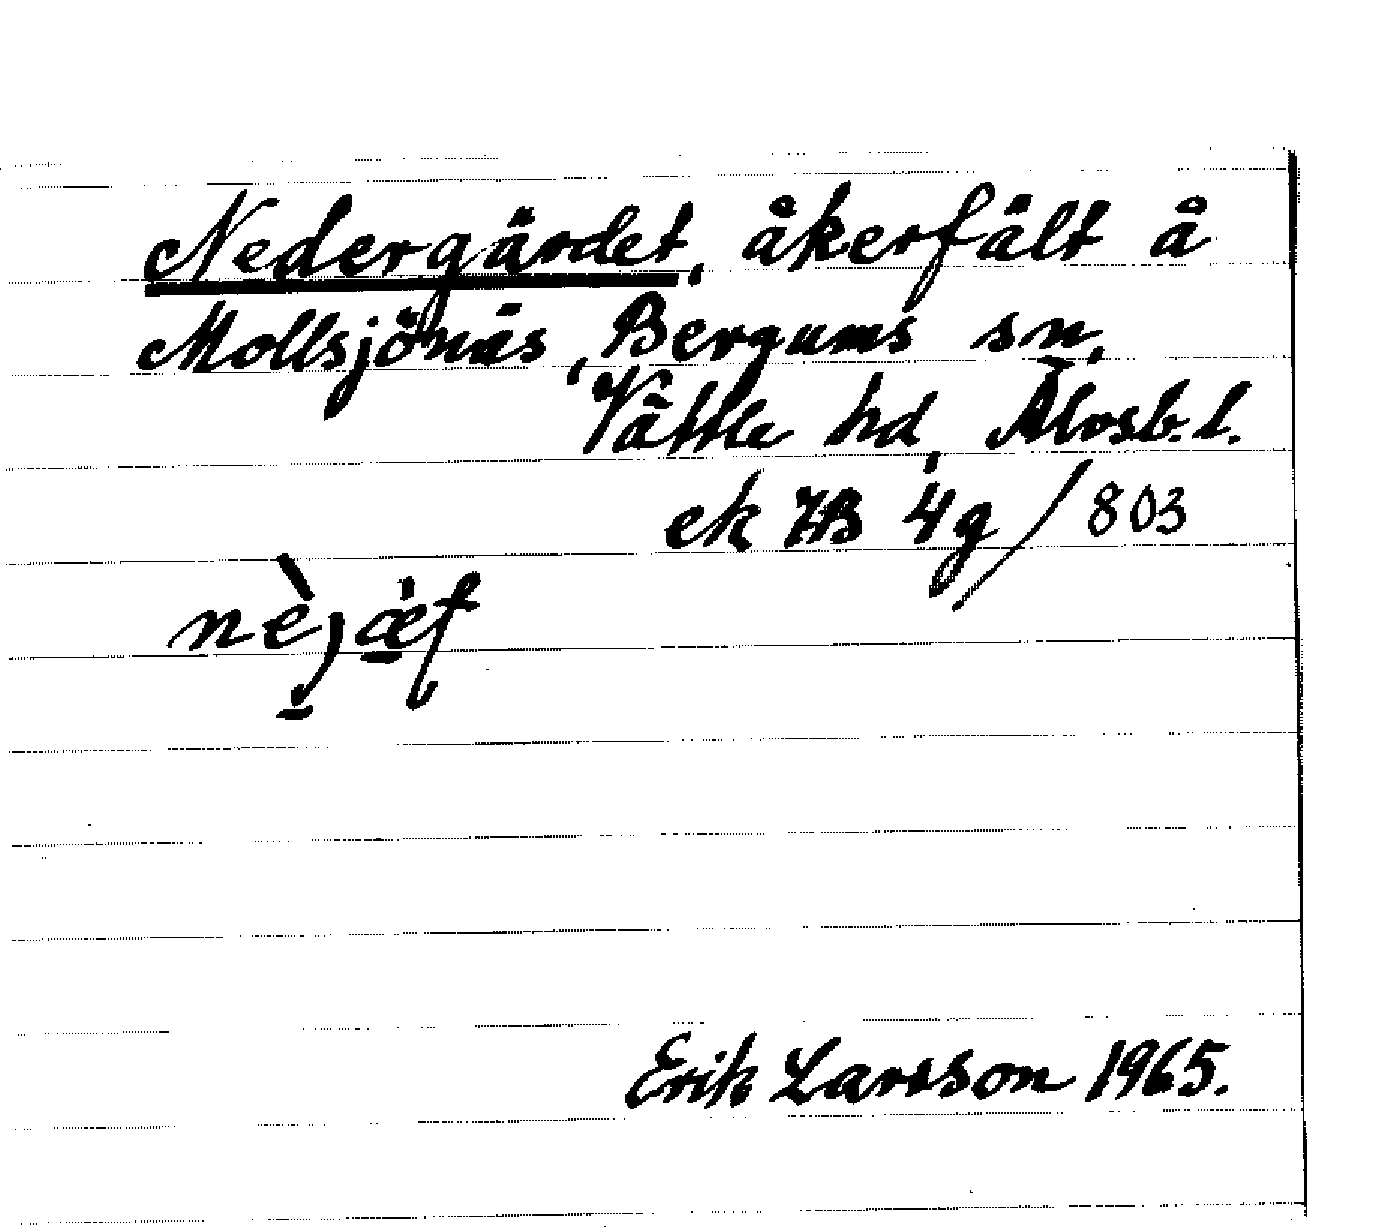 Nedergärdet, åkerfält å
Mollsjönäs, Bergums sn,
Vättle hd, Älvsb. l.
ek 7B 4g/803
Erik Larsson 1965.